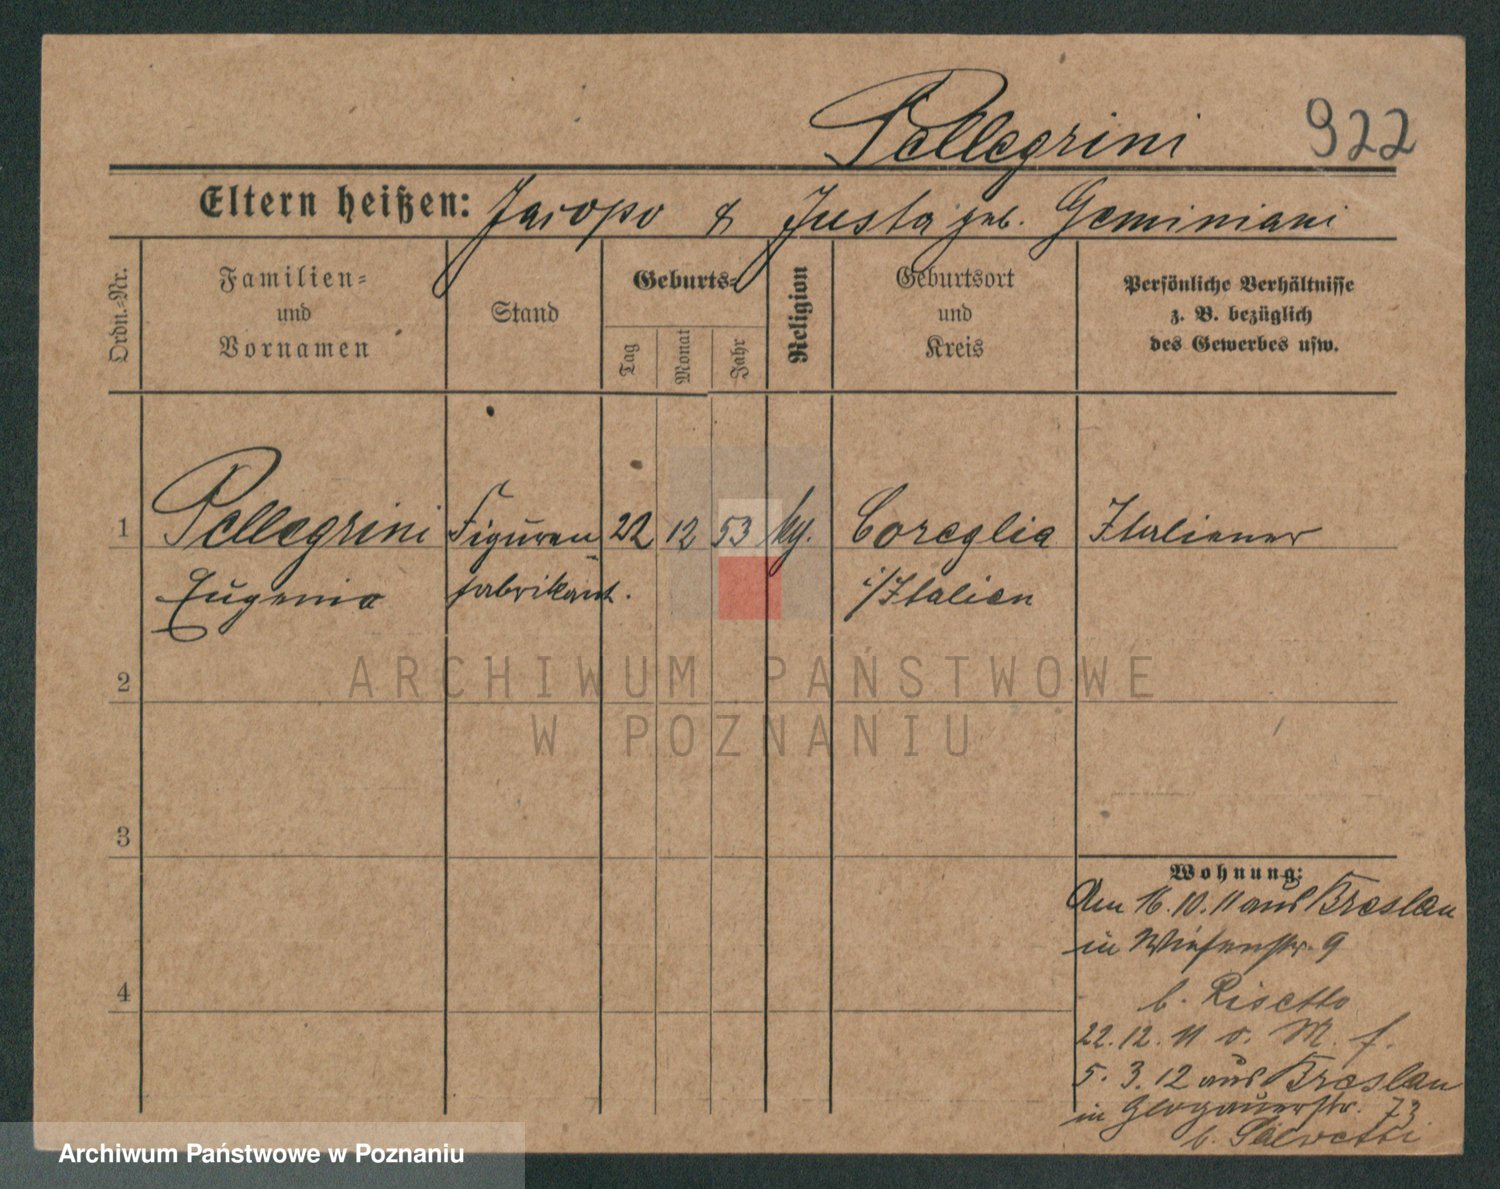 Pellegrini 922
Eltern heißen: Jacopo & Justa geb. Geminiani
Ordn.-Nr.
Familien-
und
Vornamen
Stand
Geburts-
Tag
Monat
Jahr
Religion
Geburtsort
und
Kreis
Persönliche Verhältnisse
z. B. bezüglich
des Gewerbes usw.
1 Pellegrini Figuren 22 12 53 Coreglia Italiener
Eugenio fabrikant. i/Italien
2
3
4
Wohnung:
Am 16.10.11 aus Breslau
in Wiesenstr. 9
b. Risetto
22.12.11 o. M. f.
5.3.12 aus Breslau
in Glogauerstr. 73
b. Salvetti
ARCHIWUM PAŃSTWOWE
W POZNANIU
Archiwum Państwowe w Poznaniu